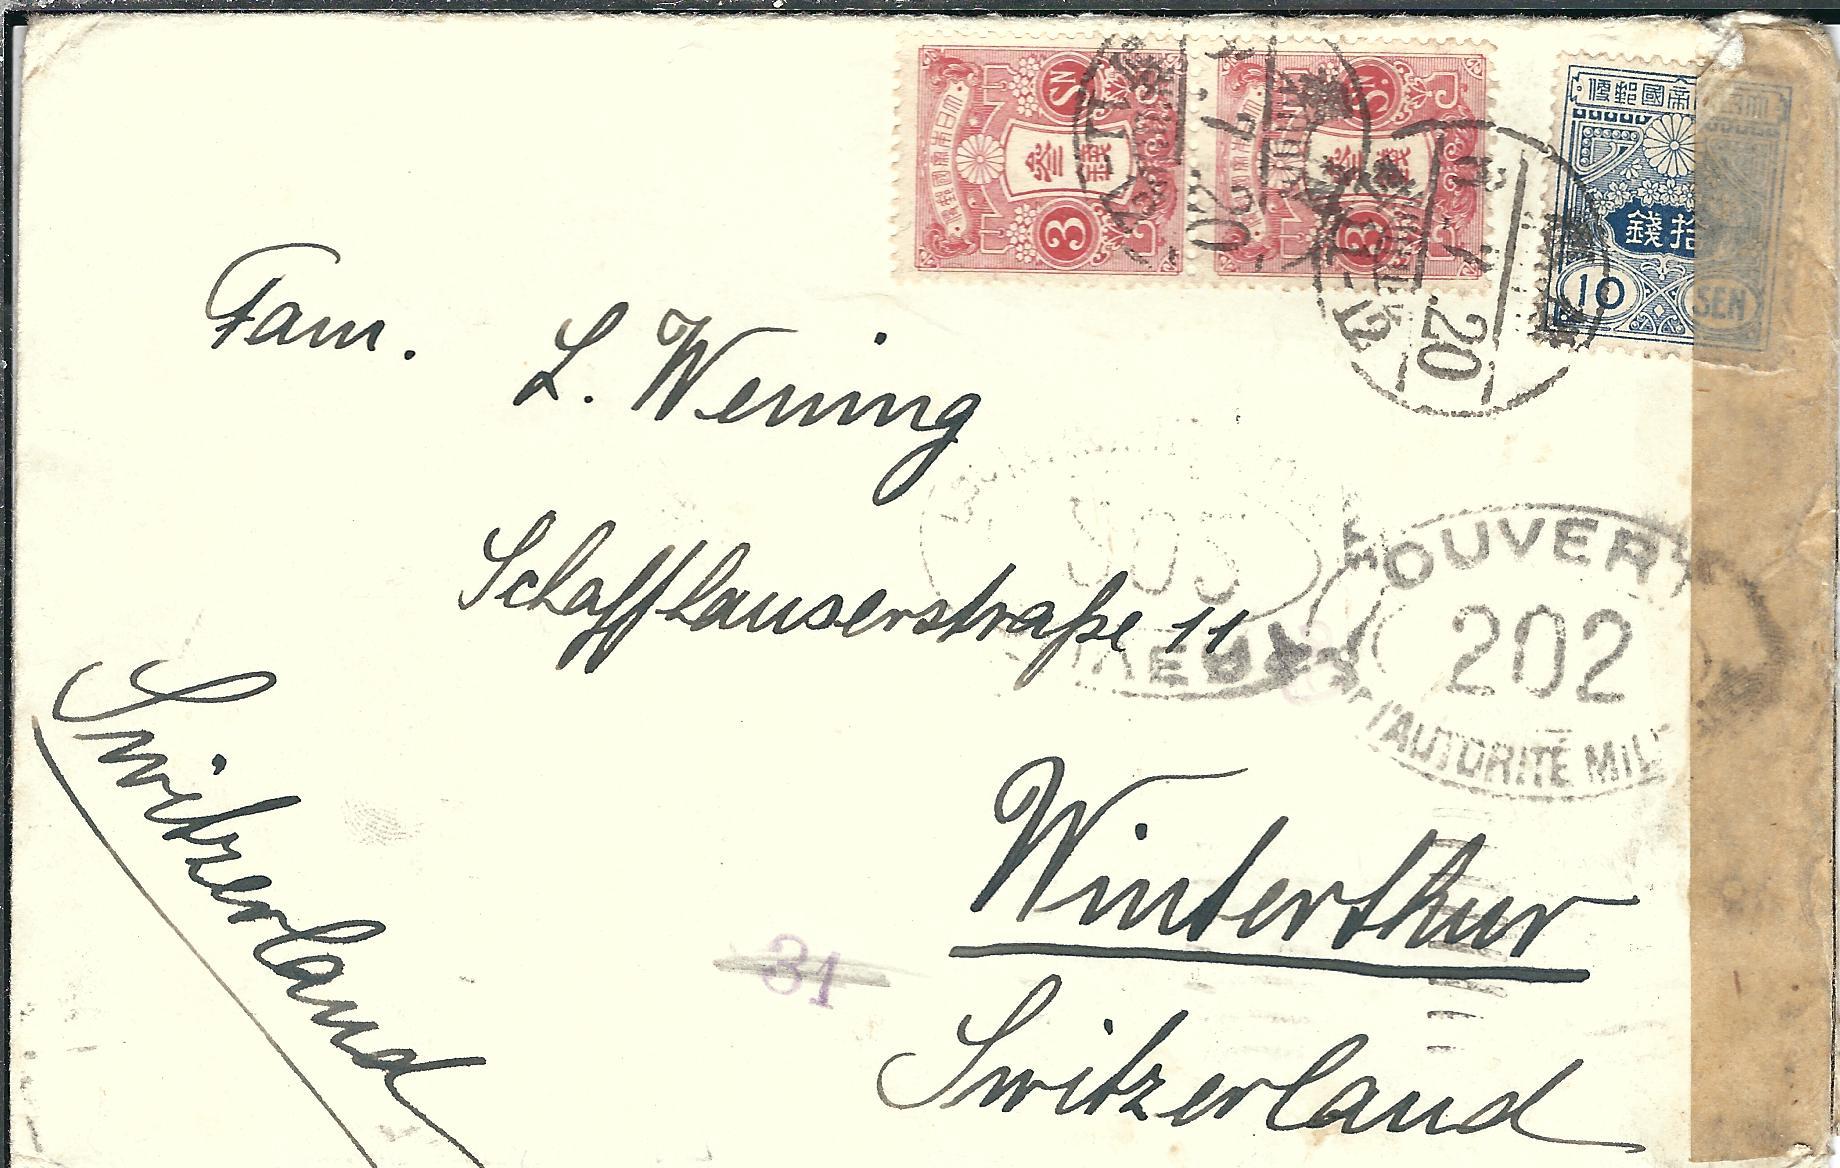 SN
大日本帝國郵便
参錢
3
SN
参錢
3
大日本帝國郵便
拾錢
10 SEN
7
20
7
20
12
Fam.
L. Wening
Schaffhauserstraße 11
Winterthur
Switzerland
Switzerland
OUVERT
202
L'AUTORITÉ MIL
31